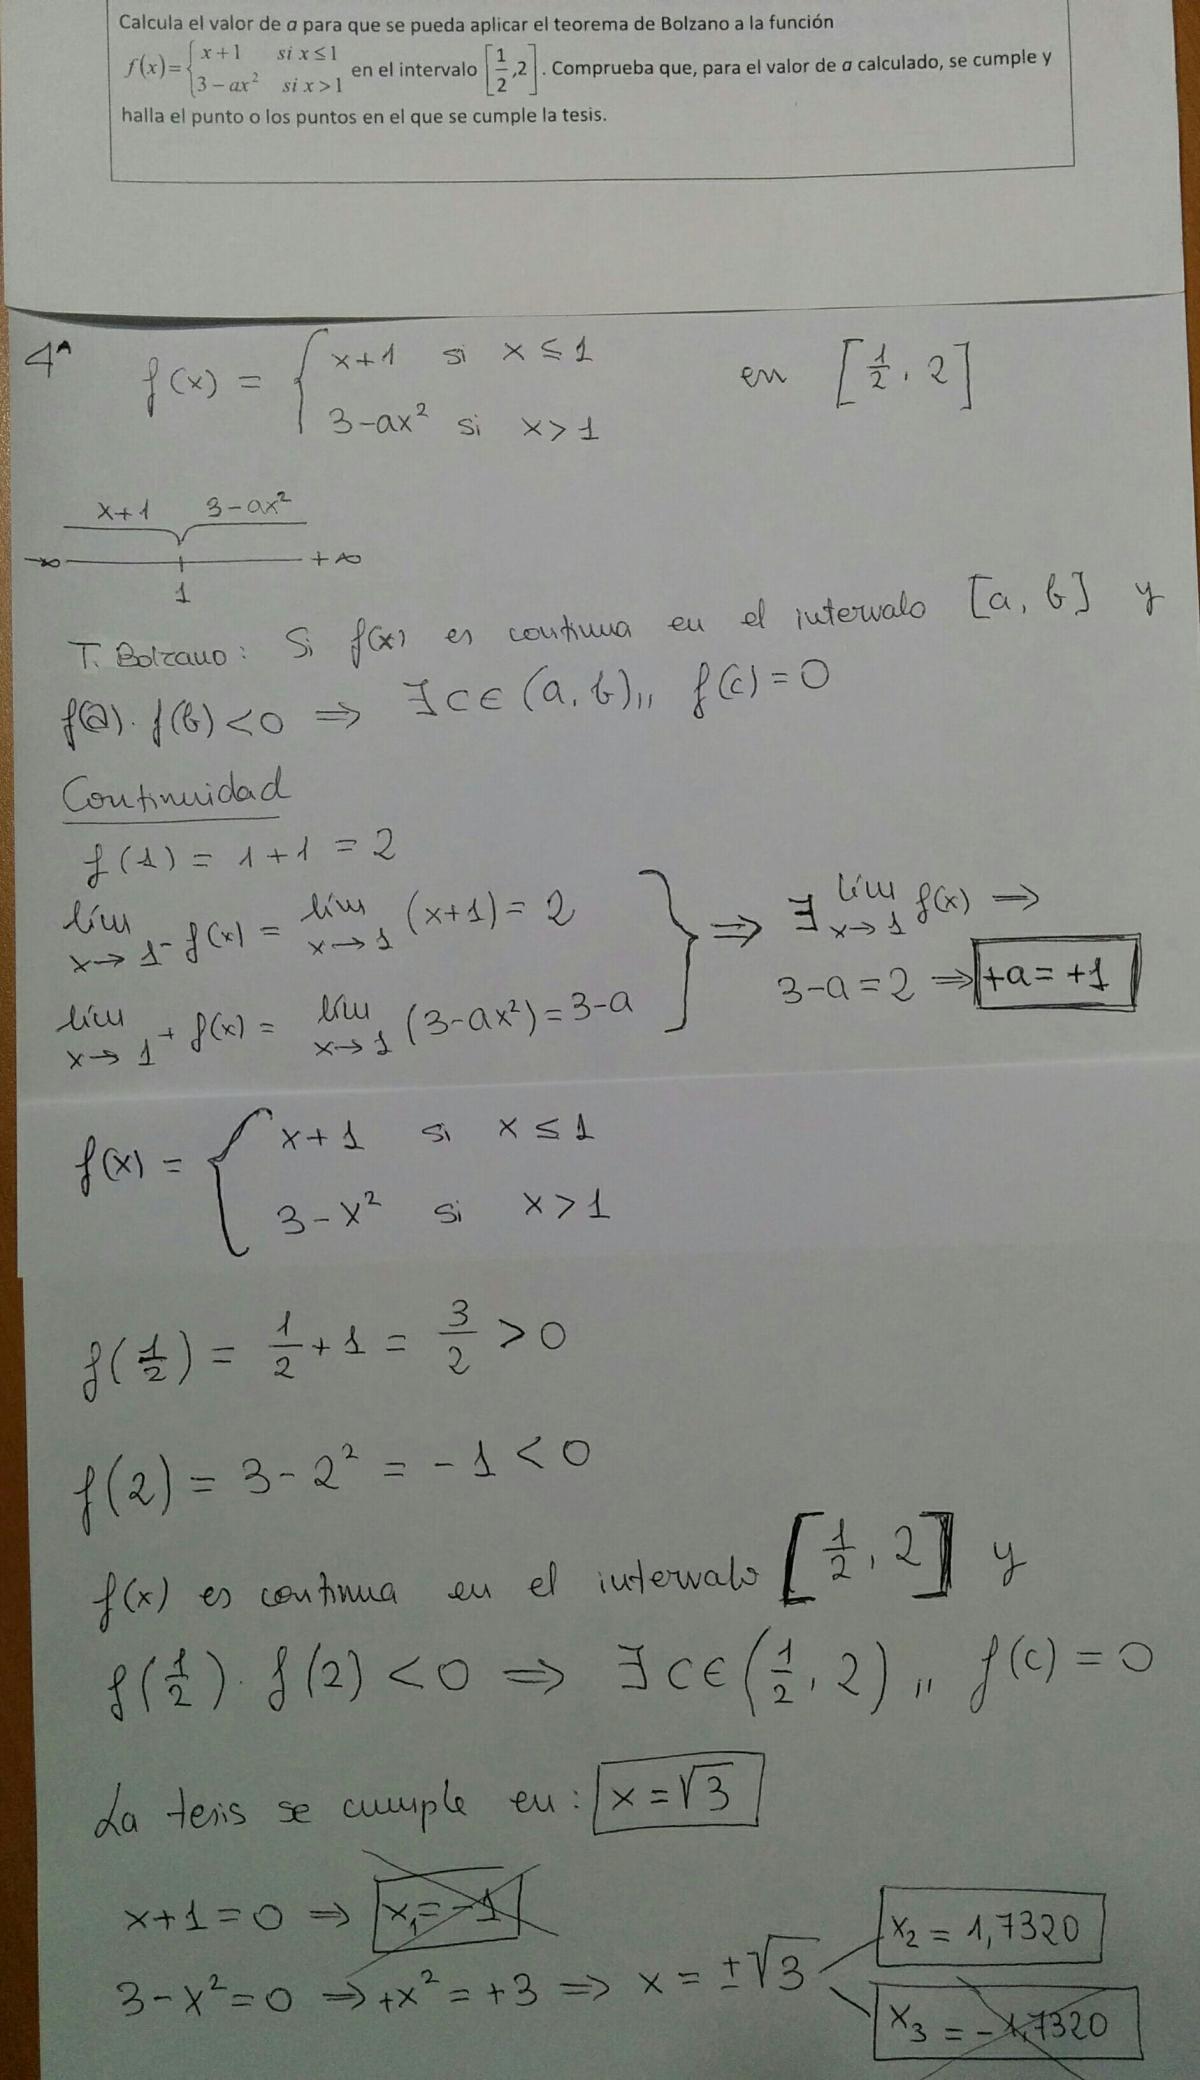 Calcula el valor de a para que se pueda aplicar el teorema de Bolzano a la función
f(x)={x+1 si x≤1
3-ax² si x>1 en el intervalo [1/2,2]. Comprueba que, para el valor de a calculado, se cumple y
halla el punto o los puntos en el que se cumple la tesis.
4^ f(x) = { x+1 si x ≤ 1 en [1/2, 2]
3-ax² si x > 1
x+1 3-ax²
-∞ +∞
1
T. Bolzano: Si f(x) es continua en el intervalo [a, b] y
f(a)·f(b)<0 ⇒ ∃ c ∈ (a, b) ,, f(c)=0
Continuidad
f(1) = 1+1 = 2
lím x→1⁻ f(x) = lím x→1 (x+1) = 2
lím x→1⁺ f(x) = lím x→1 (3-ax²) = 3-a
} ⇒ ∃ lím x→1 f(x) ⇒
3-a = 2 ⇒ +a = +1
f(x) = { x+1 si x ≤ 1
3-x² si x > 1
f(1/2) = 1/2 + 1 = 3/2 > 0
f(2) = 3-2² = -1 < 0
f(x) es continua en el intervalo [1/2, 2] y
f(1/2)·f(2) < 0 ⇒ ∃ c ∈ (1/2, 2) ,, f(c) = 0
La tesis se cumple en: x = √3
x+1 = 0 ⇒ x₁ = -1
3-x² = 0 ⇒ +x² = +3 ⇒ x = ±√3
x₂ = 1,7320
x₃ = -1,7320